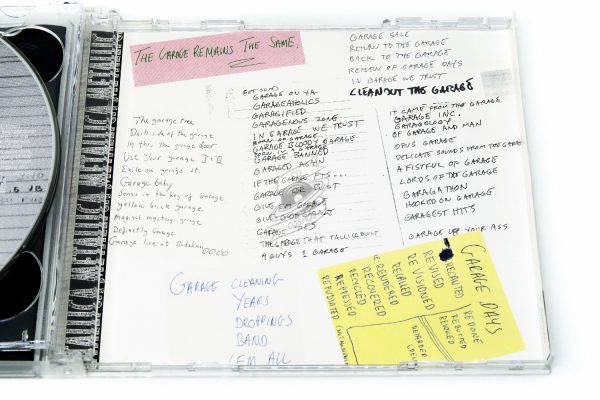 THE GARAGE REMAINS THE SAME.
GARAGE SALE
RETURN TO THE GARAGE
BACK TO THE GARAGE
RETURN OF GARAGE DAYS
IN GARAGE WE TRUST
CLEAN OUT THE GARAGE
GARAGE ON YA
GARAGEAHOLICS
GARAGIFIED
GARAGENOUS ZONE
IN GARAGE WE TRUST
BORN OF GARAGE
GARAGE BLOODY GARAGE
GARAGE BANNED
GARAGED AGAIN
IF THE GARAGE FITS...
GARAGE OR BUST
GIVE 'EM GARAGE
GARAGE
THE GARAGE THAT TALLICA BUILT
4 GUYS 1 GARAGE
The garage tree
Dark side of the garage
In thru the garage door
Use Your garage I & II
Exile on garage st.
Garage Baby
Songs in the key of Garage
yellow brick garage
Magical mystery garage
Definitely Garage
Garage live at Budokan
IT CAME FROM THE GARAGE
GARAGE INC.
GARAGOLOGY
OF GARAGE AND MAN
OPUS GARAGE
DELICATE SOUNDS FROM THE GARAGE
A FISTFUL OF GARAGE
LORDS OF THE GARAGE
GARAGATHON
HOOKED ON GARAGE
GARAGEST HITS
GARAGE UPP YOUR ASS
GARAGE CLEANING
YEARS
DROPPINGS
BAND
'EM ALL
GARAGE DAYS
REVISED
REVISIONED
RECALLED
RENDERED
RECOVERED
RECYCLED
REPRESSED
REPUDIATED
REDONE
REVOKED
METALLICA METALLICA